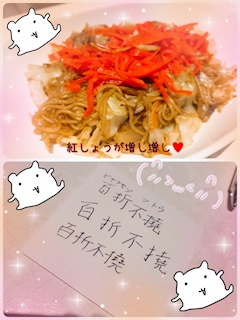 紅しょうが増し増し♥
ヒャクセツ フトウ
百折不撓
百折不撓
百折不撓